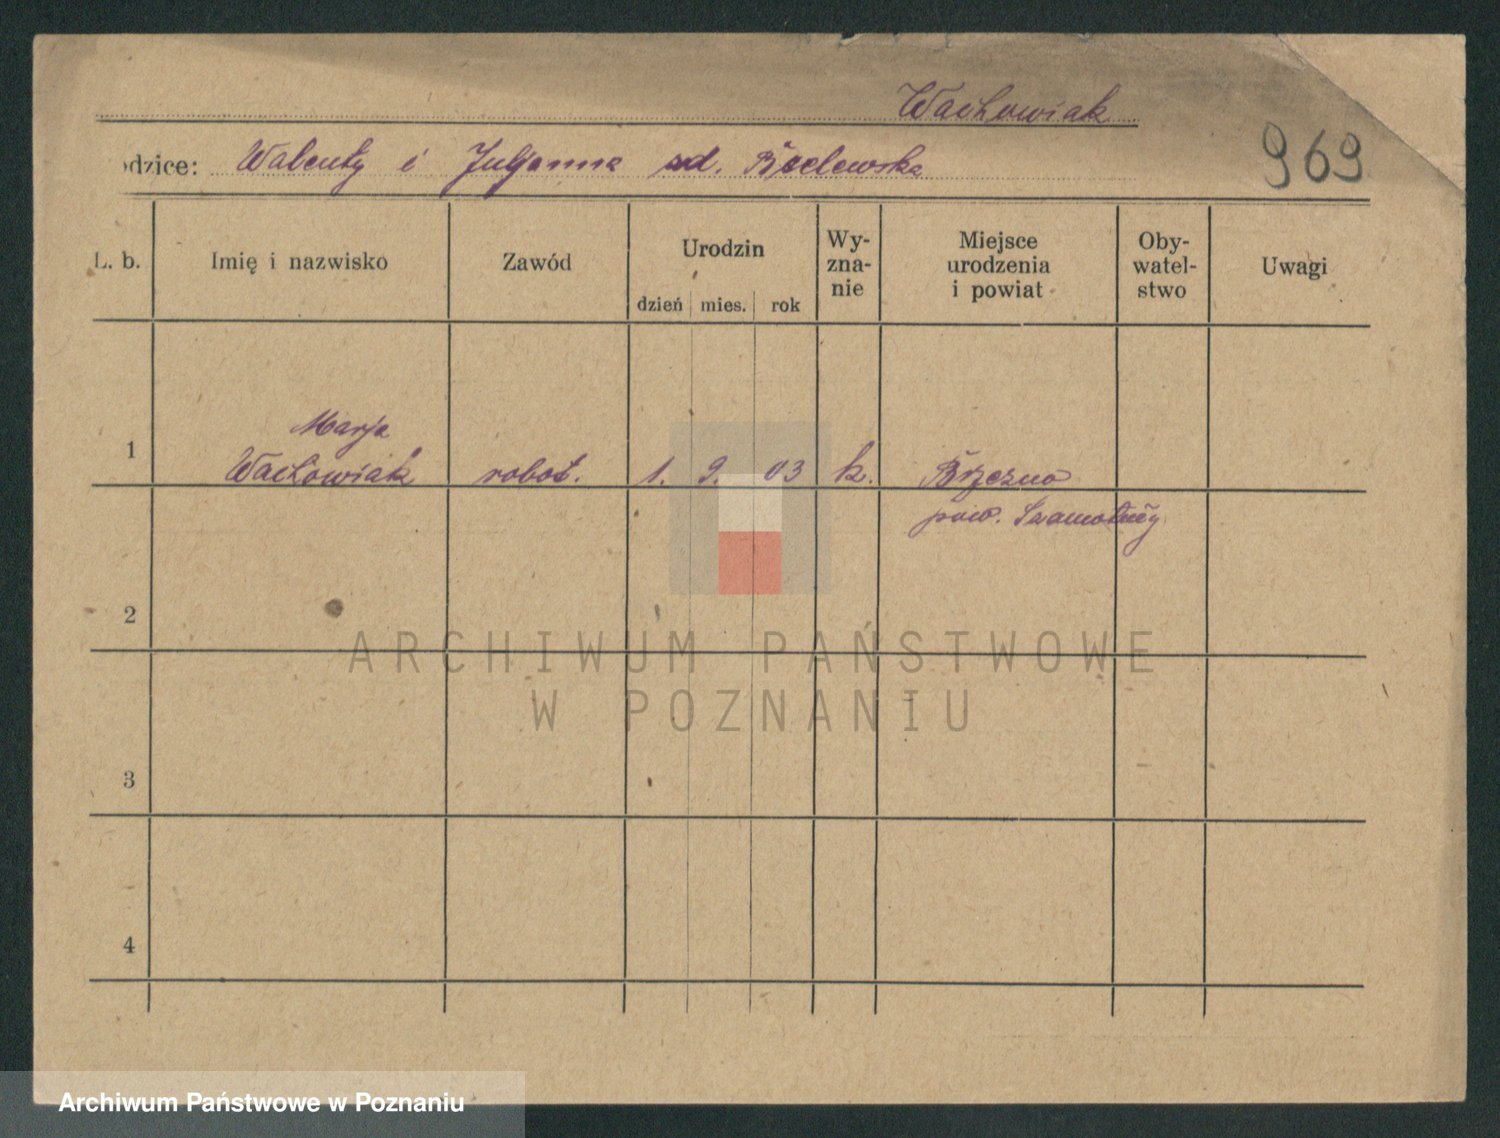 Wachowiak
odzice: Walenty i Julyanna zd. Boelewska
969
L. b. Imię i nazwisko Zawód Urodzin dzień mies. rok Wy-
zna-
nie Miejsce
urodzenia
i powiat Oby-
watel-
stwo Uwagi
1 Marja
Wachowiak robot. 1. 9. 03 k. Brzezno
pow. Szamotuły
2
ARCHIWUM PAŃSTWOWE
W POZNANIU
3
4
Archiwum Państwowe w Poznaniu